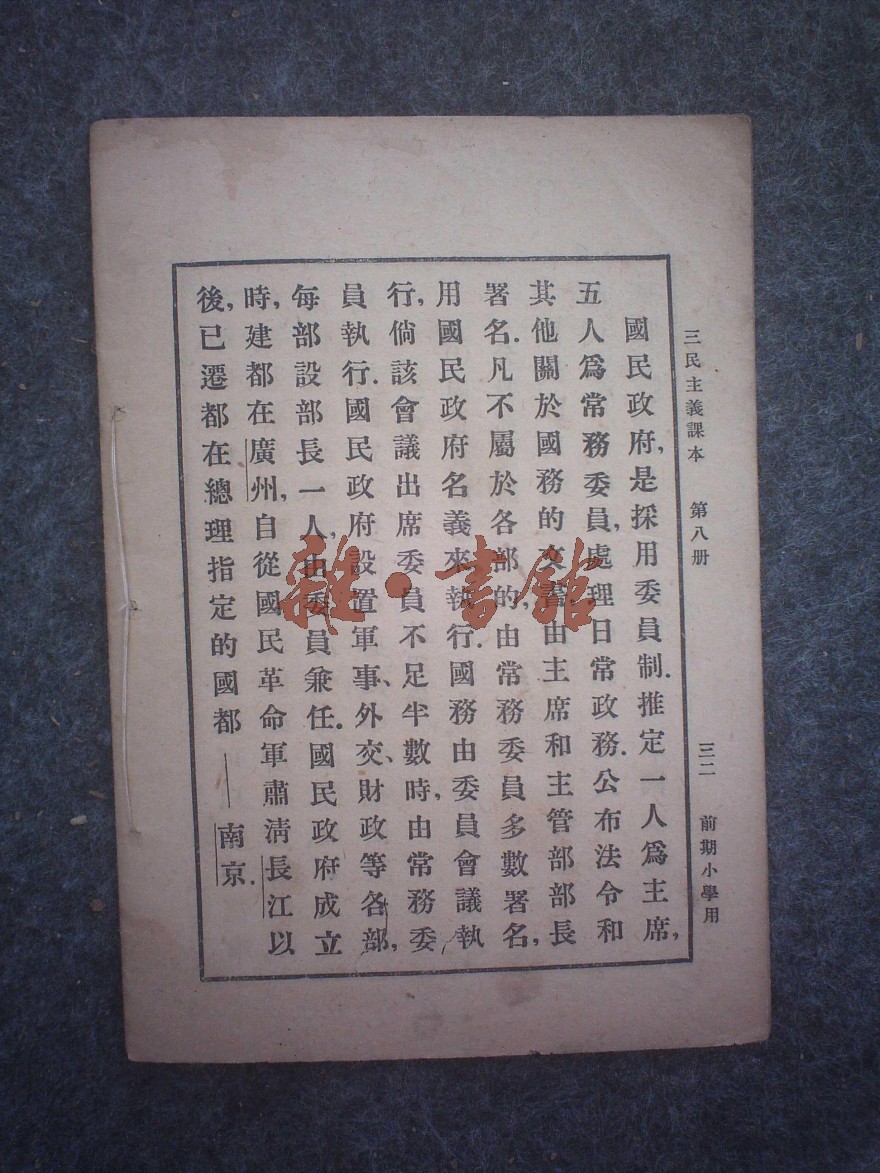 三民主義課本 第八册 三二 前期小學用
國民政府,是採用委員制.推定一人爲主席,
五人爲常務委員,處理日常政務.公布法令和
其他關於國務的文書,由主席和主管部部長
署名.凡不屬於各部的,由常務委員多數署名,
用國民政府名義來執行.國務由委員會議執
行,倘該會議出席委員不足半數時,由常務委
員執行.國民政府設置軍事、外交、財政等各部,
每部設部長一人,由委員兼任.國民政府成立
時,建都在廣州,自從國民革命軍肅清長江以
後,已遷都在總理指定的國都——南京.
雜·書館